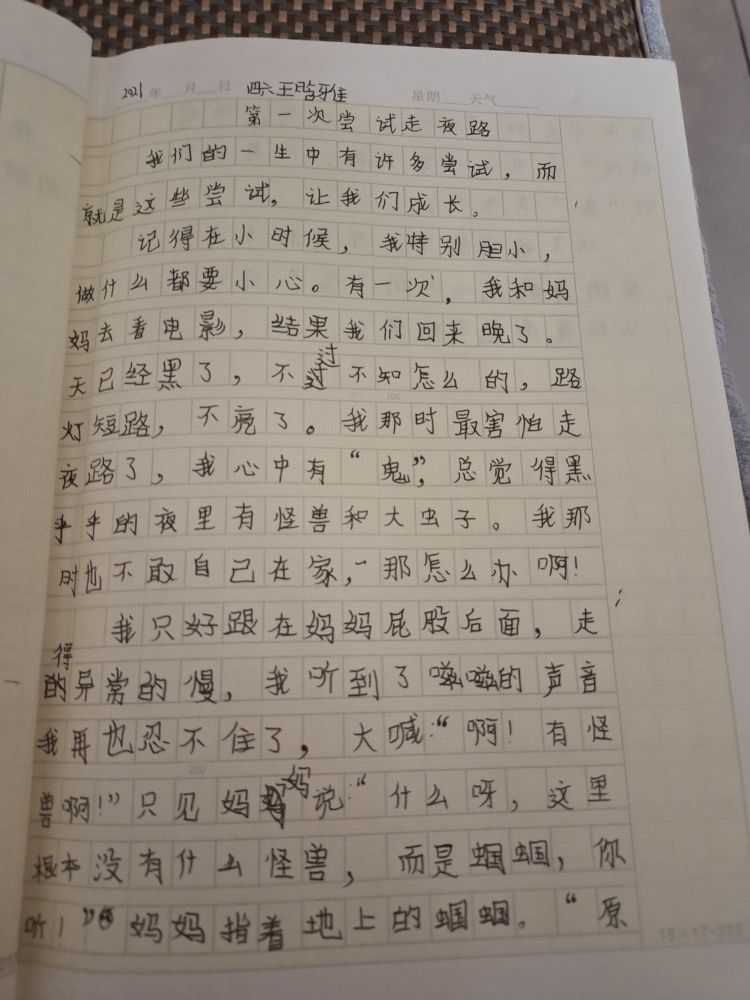 2021年 月 日 四六王皆雅 星期 天气
第一次尝试走夜路
我们的一生中有许多尝试，而
就是这些尝试，让我们成长。
记得在小时候，我特别胆小，
做什么都要小心。有一次，我和妈
妈去看电影，结果我们回来晚了。
天已经黑了，不过不知怎么的，路
灯短路，不亮了。我那时最害怕走
夜路了，我心中有“鬼”，总觉得黑
乎乎的夜里有怪兽和大虫子。我那
时也不敢自己在家，那怎么办啊！
我只好跟在妈妈屁股后面，走
得异常的慢，我听到了嗞嗞的声音
我再也忍不住了，大喊：“啊！有怪
兽啊！”只见妈妈说：“什么呀，这里
根本没有什么怪兽，而是蝈蝈，你
听！”妈妈指着地上的蝈蝈。“原
16×17=255